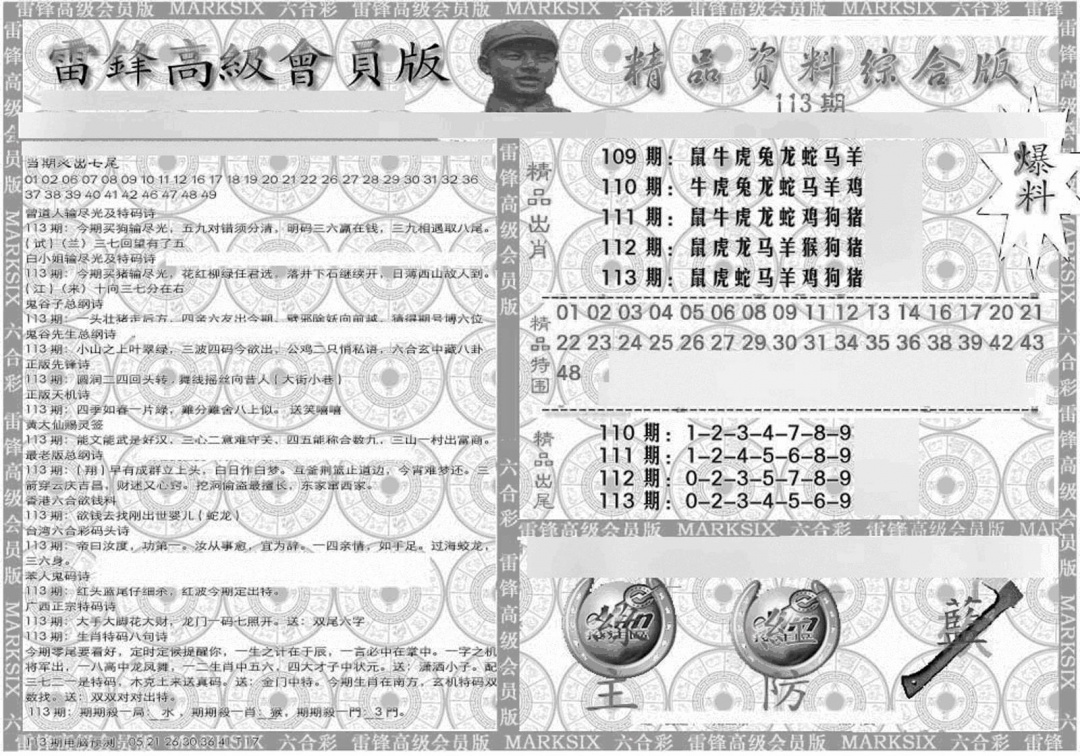 雷锋高级会员版 MARKSIX 六合彩 雷锋高级会员版 MARKSIX 六合彩 雷锋高级会员版 MARKSIX 六合彩 雷锋
雷鋒高級會員版
精品資料綜合版
113期
爆料
当期火出七尾
01 02 06 07 08 09 10 11 12 16 17 18 19 20 21 22 26 27 28 29 30 31 32 36
37 38 39 40 41 42 46 47 48 49
曾道人输尽光及特码诗
113期：今期买狗输尽光，五九对错须分清，明码三六赢在钱，三九相遇取八尾。
(试)(兰）三七回望有了五
白小姐输尽光及特码诗
113期：今期买猪输尽光，花红柳绿任君选，落井下石继续开，日薄西山故人到。
(江)(米）十问三七分在右
鬼谷子总纲诗
113期：一头壮猪走后方，四亲六友出今期，劈邪除妖向前越，猜得期号博六位
鬼谷先生总纲诗
113期：小山之上叶翠绿，三波四码今欲出，公鸡二只悄私语，六合玄中藏八卦
正版先锋诗
113期：圆润二四回头转，舞线摇丝向昔人(大街小巷)
正版天机诗
113期：四季如春一片緑，難分難舍八上似。 送笑嘻嘻
黄大仙赐灵签
113期：能文能武是好汉，三心二意难守关，四五能称合数九，三山一村出富商。
最老版总纲诗
113期：(翔)早有成群立上头，白日作白梦。互釜荆篮止道边，今宵难梦还。三
箭穿云庆吉昌，财迷又心窍。挖洞偷盗最擅长，东家串西家。
香港六合欲钱料
113期：欲钱去找刚出世婴儿(蛇龙)
台湾六合彩码头诗
113期：帝曰汝度，功第一。汝从事愈，宜为辞。一四亲情，如手足。过海蛟龙，
三六身。
苯人鬼码诗
113期：红头蓝尾仔细杀，红波今期定出特。
广西正宗特码诗
113期：大手大脚花大财，龙门一码七照开。送：双尾六字
113期：生肖特码八句诗
今期零尾要看好，定时定候提醒你，一生之计在于辰，一言必中在掌中。一字之机
将军出，一八高中龙凤舞，一二生肖中五六，四大才子中状元。送：潇洒小子。配
三七二一是特码，木克土来送真码。送：金门中特。今期生肖在南方，玄机特码双
数找，送：双双对对出特。
113期：期期殺一局：水，期期殺一肖：猴，期期殺一門：3門。
精品出肖
109 期：鼠牛虎兔龙蛇马羊
110 期：牛虎兔龙蛇马羊鸡
111 期：鼠牛虎龙蛇鸡狗猪
112 期：鼠虎龙马羊猴狗猪
113 期：鼠虎蛇马羊鸡狗猪
精品特围
01 02 03 04 05 06 08 09 11 12 13 14 16 17 20 21
22 23 24 25 26 27 29 30 31 34 35 36 38 39 42 43
48
精品出尾
110 期：1-2-3-4-7-8-9
111 期：1-2-4-5-6-8-9
112 期：0-2-3-5-7-8-9
113 期：0-2-3-4-5-6-9
雷锋高级会员版 MARKSIX 六合彩 雷锋高级会员版 MARKSIX
王
防
藍
113期电脑预测：05 21 26 30 36 41 T:17
六合彩 雷锋高级会员版 MARKSIX 六合彩 雷锋高级会员版 MARKSIX 六合彩 雷锋